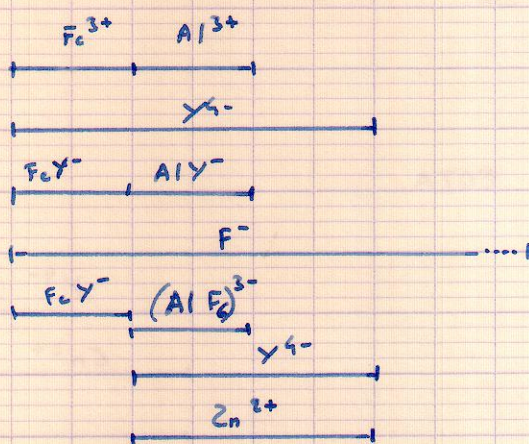 Fe³⁺ Al³⁺
Y⁴⁻
FeY⁻ AlY⁻
F⁻
FeY⁻ (AlF₆)³⁻
Y⁴⁻
Zn²⁺